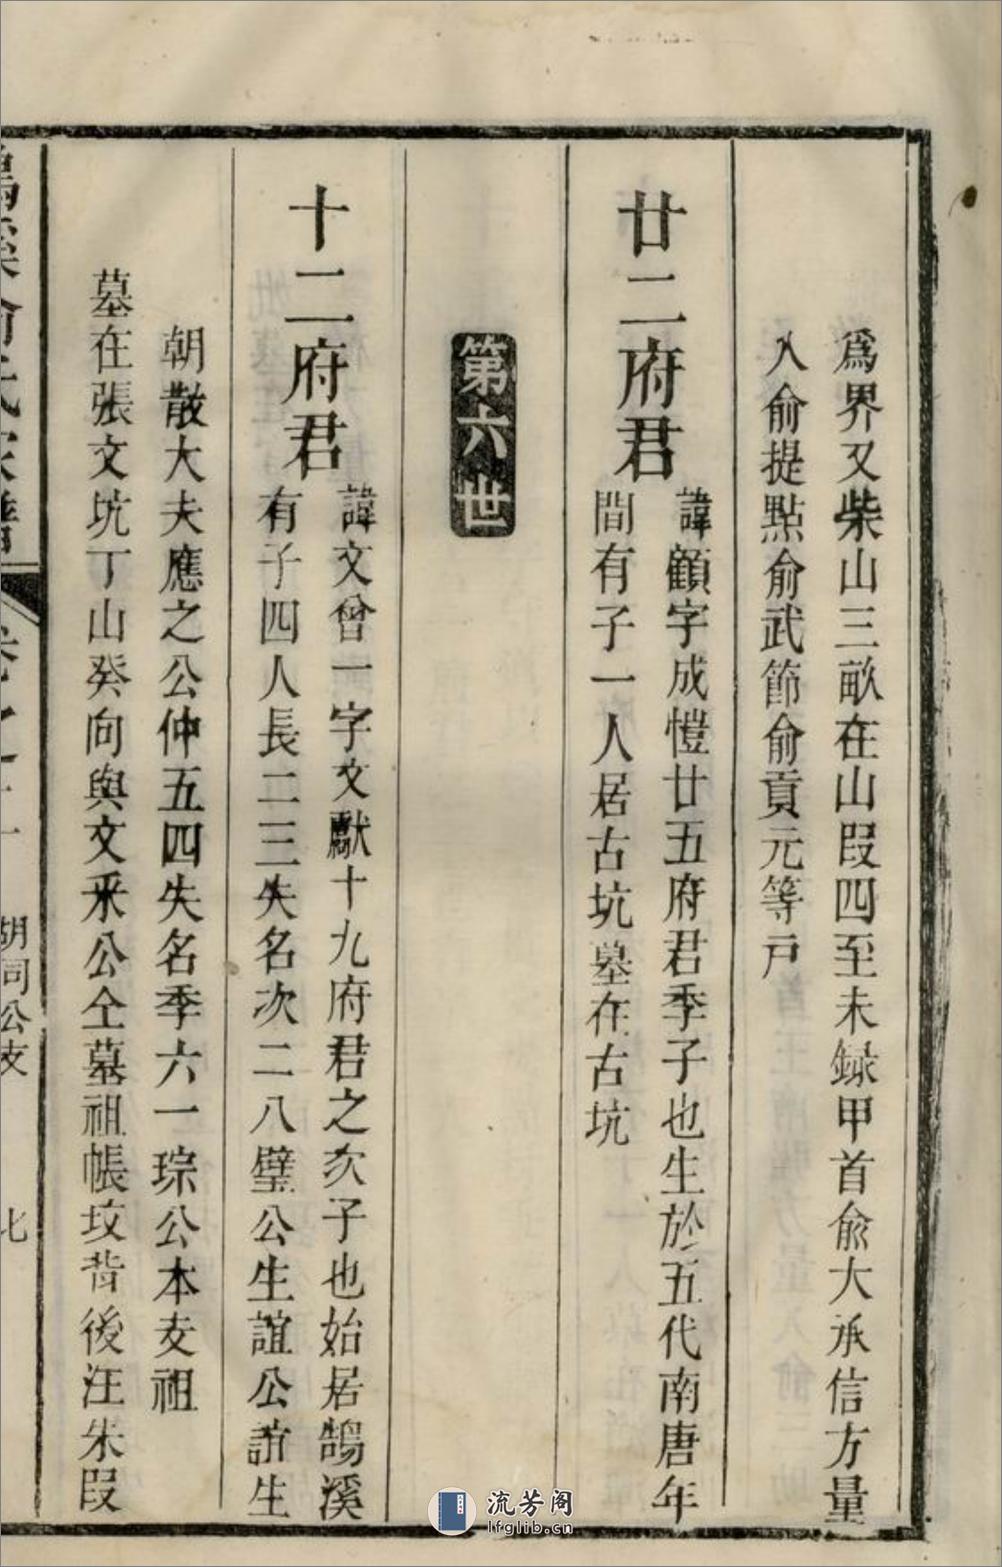 爲界又柴山三畝在山叚四至未録甲首俞大承信方量
入俞提點俞武節俞貢元等戸
廿二府君
諱顧字成愷廿五府君季子也生於五代南唐年
間有子一人居古坑墓在古坑
第六世
十二府君
諱文曾一字文獻十九府君之次子也始居鵠溪
有子四人長二三失名次二八璧公生誼公誼生
朝散大夫應之公仲五四失名季六一琮公本支祖
墓在張文坑丁山癸向與文采公仝墓祖帳坟背後汪朱叚
俞氏家譜
卷之一
胡同公支
流芳阁
lfglib.cn